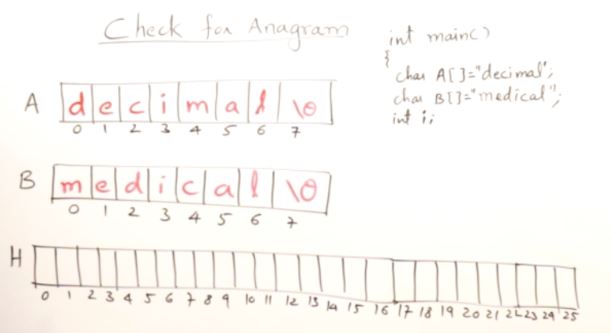 Check for Anagram
int main()
{
char A[]="decimal";
char B[]="medical";
int i;
A d e c i m a l \0
0 1 2 3 4 5 6 7
B m e d i c a l \0
0 1 2 3 4 5 6 7
H
0 1 2 3 4 5 6 7 8 9 10 11 12 13 14 15 16 17 18 19 20 21 22 23 24 25